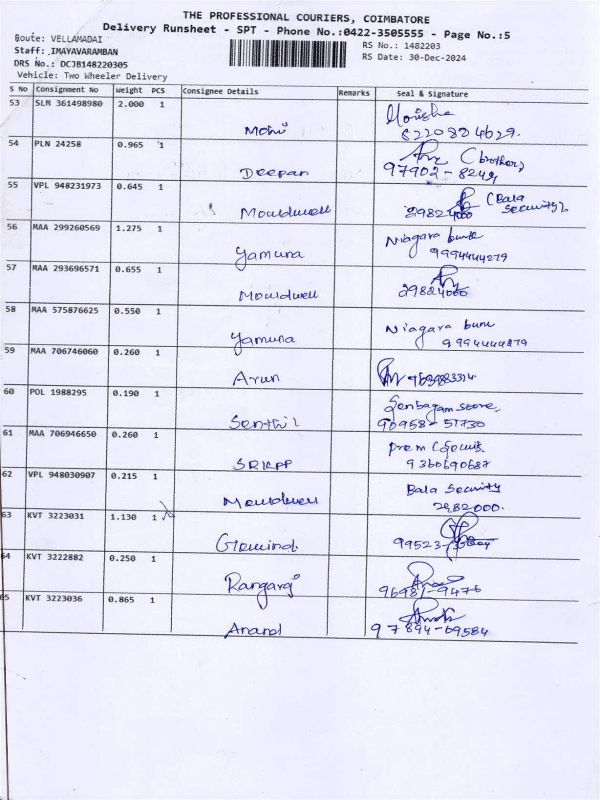 THE PROFESSIONAL COURIERS, COIMBATORE
Delivery Runsheet - SPT - Phone No.:0422-3505555 - Page No.:5
Route: VELLAMADAI
RS No.: 1482203
Staff: IMAYAVARAMBAN
RS Date: 30-Dec-2024
DRS No.: DCJB148220305
Vehicle: Two Wheeler Delivery
S No Consignment No Weight PCS Consignee Details Remarks Seal & Signature
53 SLM 361498980 2.000 1
Monisha
8220884629.
54 PLN 24258 0.965 1
Deepan
(brother)
97902-8249
55 VPL 948231973 0.645 1
Mouldwell
(Bala Security)
29824000
56 MAA 299260569 1.275 1
Yamuna
Niagara bunk
9994444279
57 MAA 293696571 0.655 1
Mouldwell
29824000
58 MAA 575876625 0.550 1
Yamuna
Niagara bunk
9994444279
59 MAA 706746060 0.260 1
Arun
60 POL 1988295 0.190 1
Senthil
Senbagam store,
90958-51730
61 MAA 706946650 0.260 1
prem
9360690687
62 VPL 948030907 0.215 1
Mouldwell
Bala Security
2982000.
63 KVT 3223031 1.130 1
99523-
64 KVT 3222882 0.250 1
Rangaraj
96981-9476
65 KVT 3223036 0.865 1
Anand
97894-69584